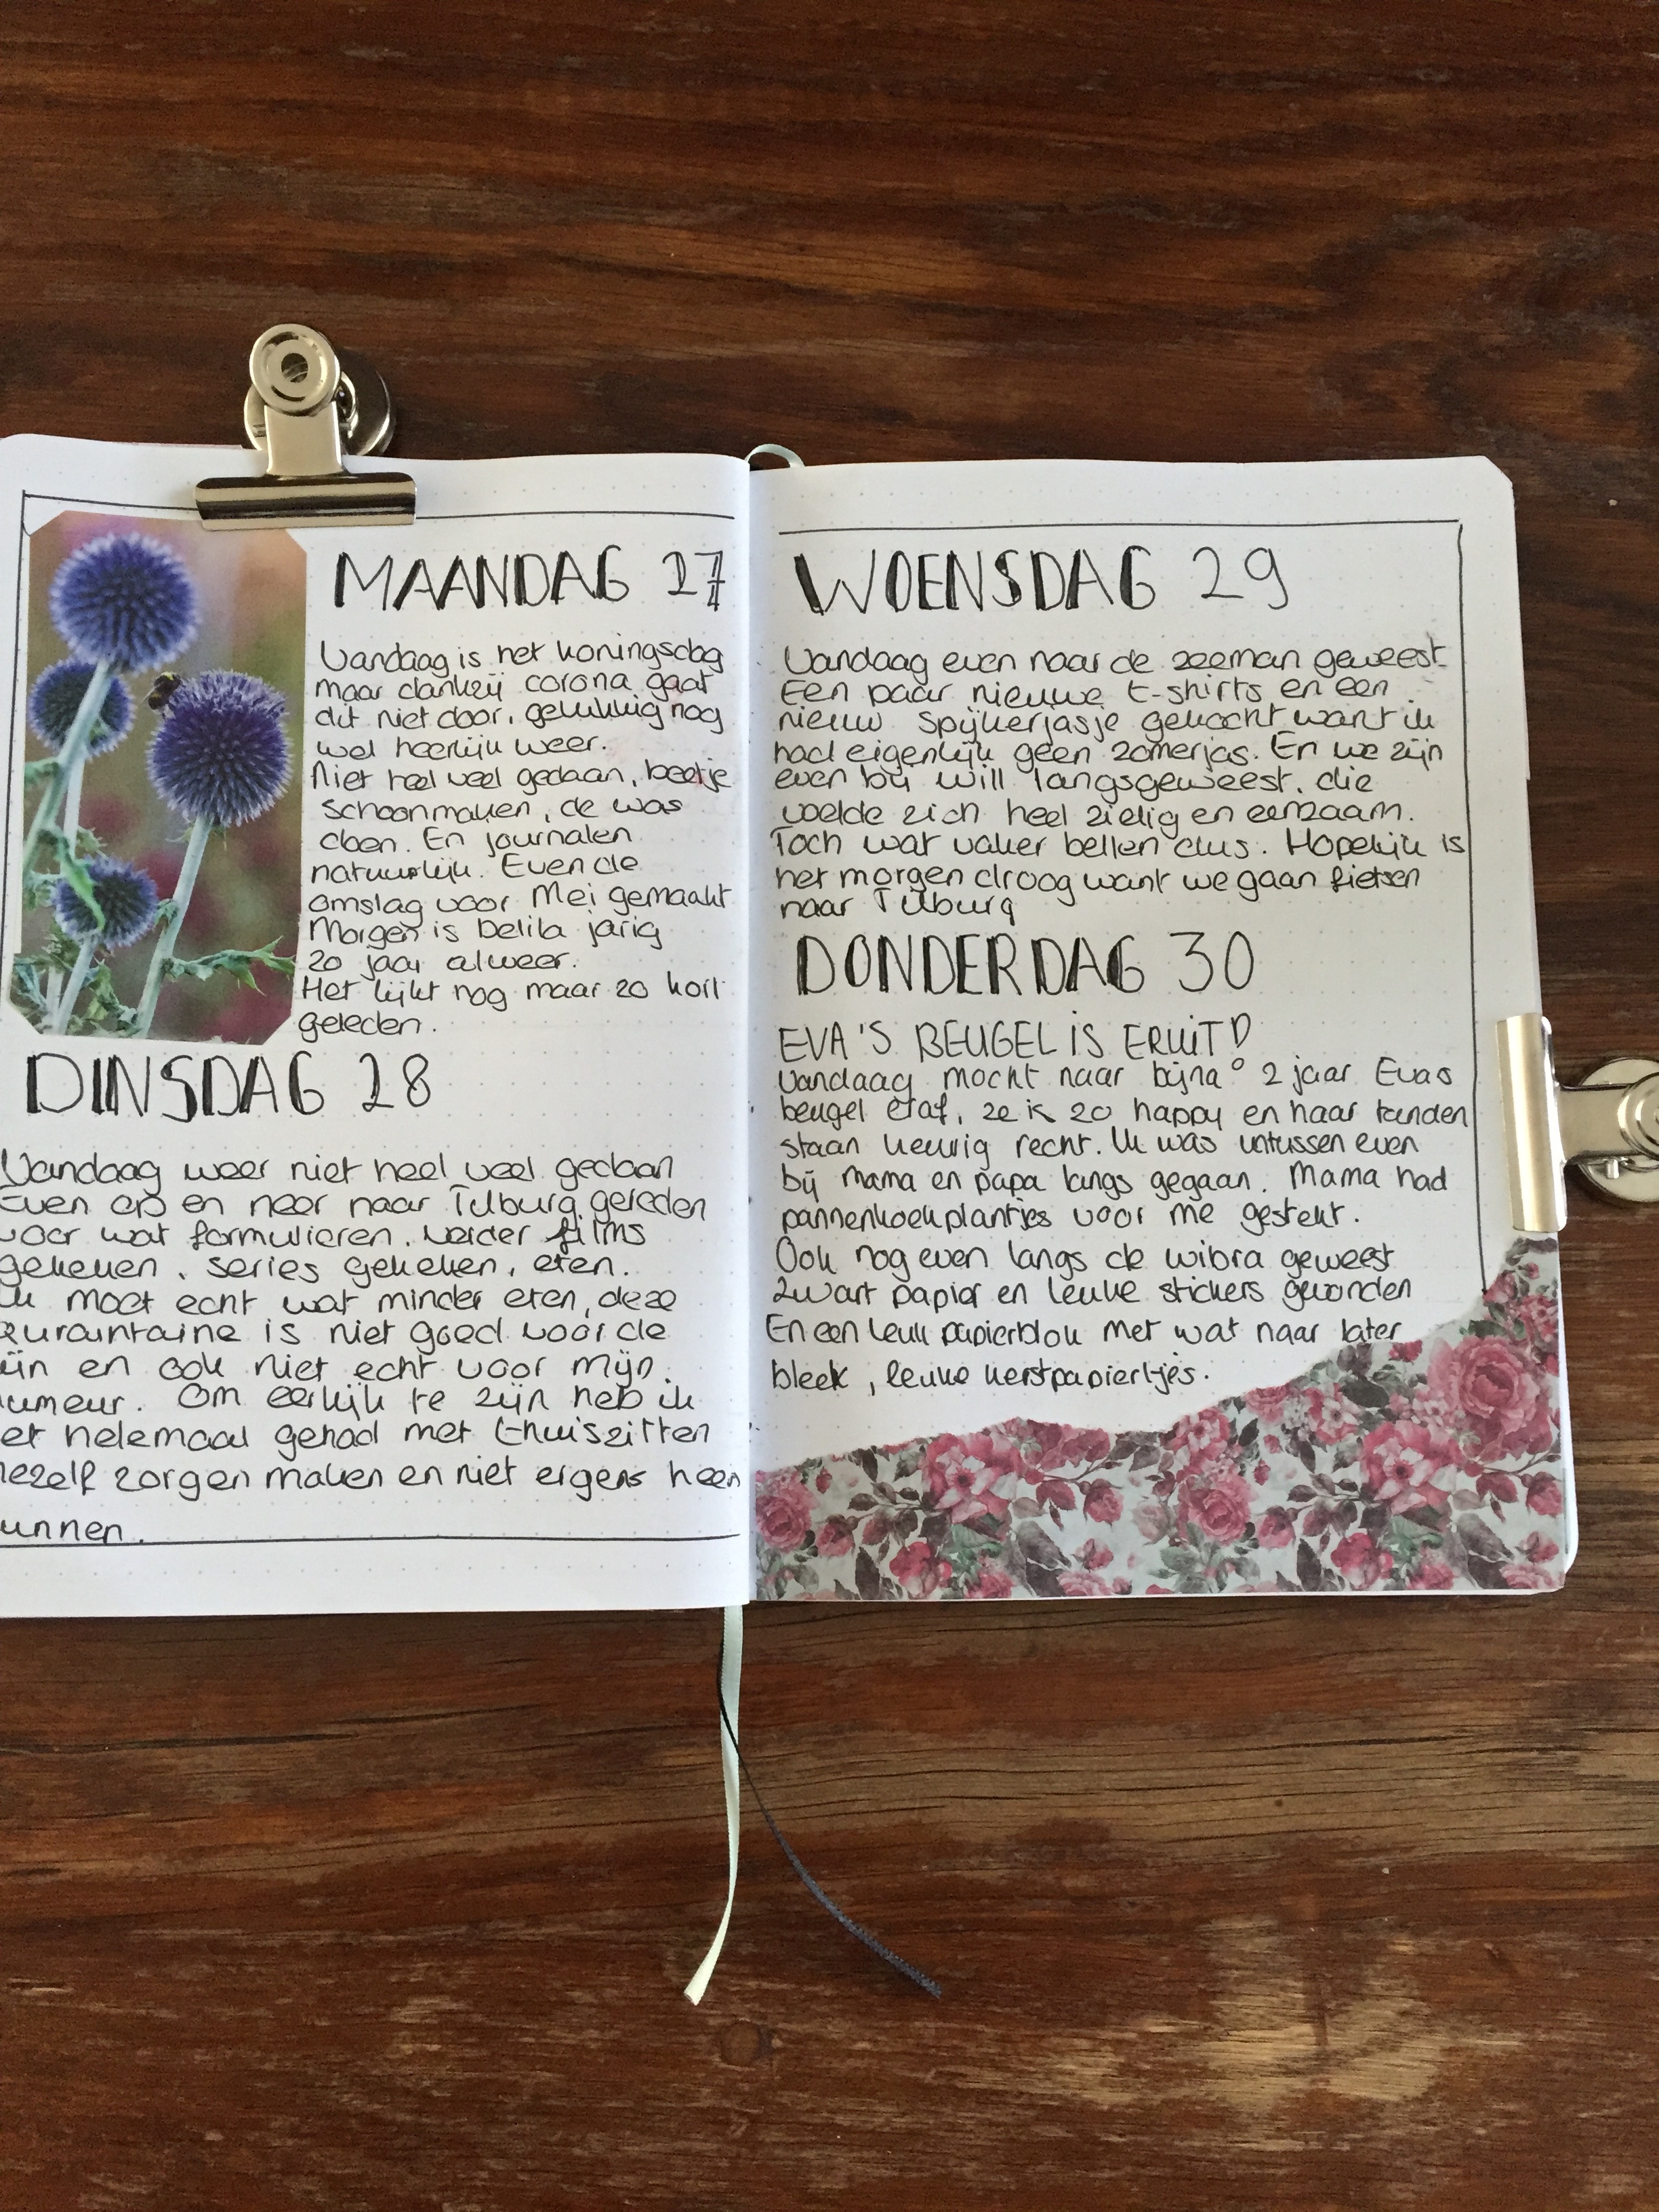 MAANDAG 27
Vandaag is het koningsdag
maar dankzij corona gaat
dit niet door, gelukkig nog
wel heerlijk weer.
Niet heel veel gedaan, beetje
schoonmaken, de was
doen. En journalen
natuurlijk. Even de
omslag voor Mei gemaakt
Morgen is Delila jarig
20 jaar alweer.
Het lijkt nog maar zo kort
geleden.
DINSDAG 28
Vandaag weer niet heel veel gedaan
Even op en neer naar Tilburg gereden
voor wat formulieren. Verder films
gekeken, series gekeken, eten.
Ik moet echt wat minder eten, deze
quraintaine is niet goed voor de
ijn en ook niet echt voor mijn
umeur. Om eerlijk te zijn heb ik
et helemaal gehad met thuiszitten
ezelf zorgen maken en niet ergens heen
unnen.
WOENSDAG 29
Vandaag even naar de zeeman geweest
Een paar nieuwe t-shirts en een
nieuw spijkerjasje gekocht want ik
had eigenlijk geen zomerjas. En we zijn
even bij will langsgeweest, die
voelde zich heel zielig en eenzaam.
Toch wat vaker bellen dus. Hopelijk is
het morgen droog want we gaan fietsen
naar Tilburg
DONDERDAG 30
EVA'S BEUGEL IS ERUIT!
Vandaag mocht naar bijna 2 jaar Evas
beugel eraf, ze is zo happy en haar tanden
staan keurig recht. Ik was intussen even
bij mama en papa langs gegaan. Mama had
pannenkoekplantjes voor me gestekt.
Ook nog even langs de wibra geweest
zwart papier en leuke stickers gevonden
En een leuk papierblok met wat naar later
bleek, leuke kerstpapiertjes.